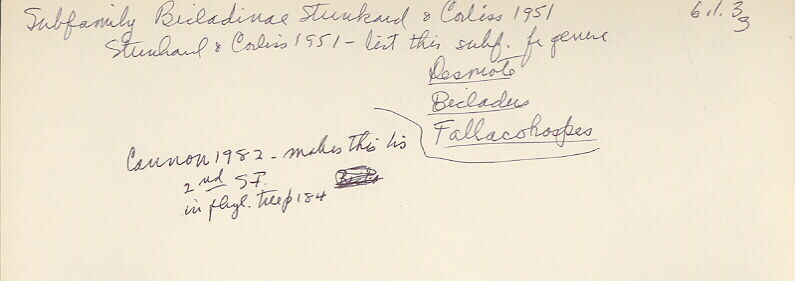 Subfamily Bicladinae Stunkard & Corliss 1951
6.1.3
3
Stunkard & Corliss 1951 - list this subf. for genera
Desmote
Bicladus
Fallacohospes
Cannon 1982 - makes this his
2nd S.F.
in phyl. tree p 184